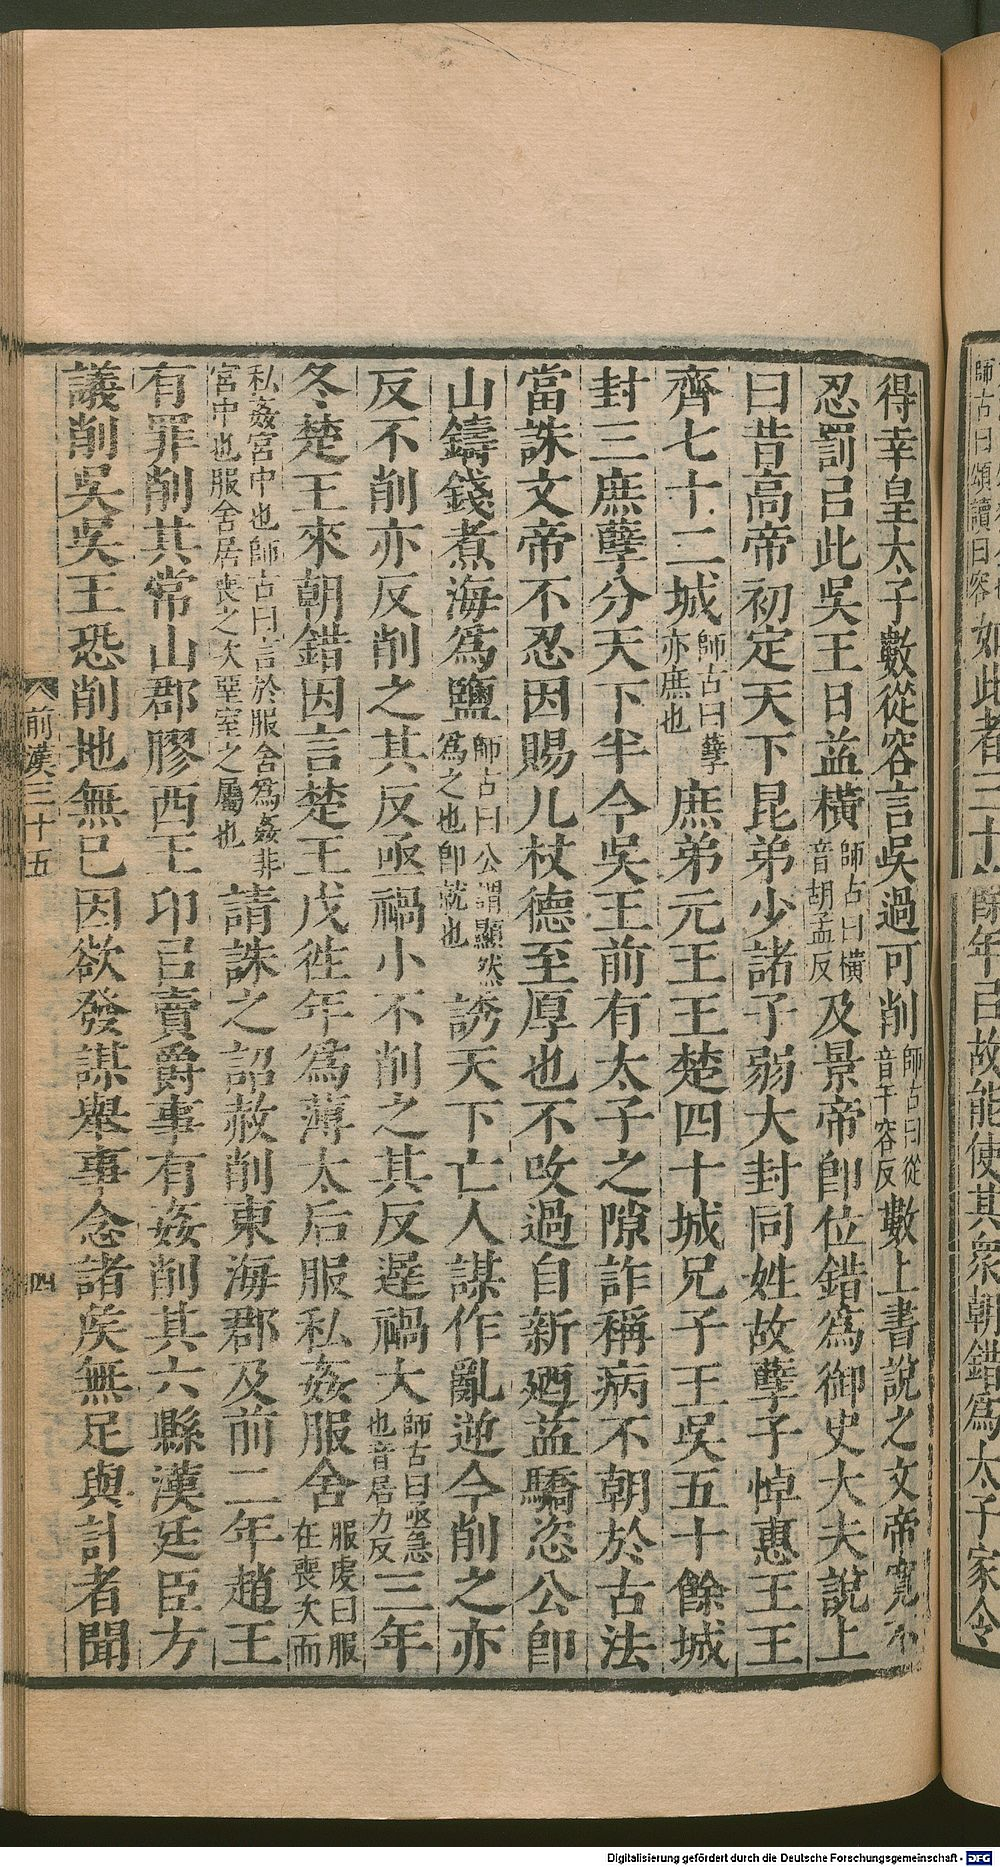 師古曰頌讀曰容如此者三十餘年㠯故能使其衆朝錯爲太子家令
得幸皇太子數從容言吳過可削師古曰從音千容反數上書說之文帝寬不
忍罰㠯此吳王日益橫師古曰橫音胡孟反及景帝卽位錯爲御史大夫說上
曰昔高帝初定天下昆弟少諸子弱大封同姓故孽子悼惠王王
齊七十二城師古曰孽亦庶也庶弟元王王楚四十城兄子王吳五十餘城
封三庶孽分天下半今吳王前有太子之隙詐稱病不朝於古法
當誅文帝不忍因賜几杖德至厚也不攺過自新廼益驕恣公卽
山鑄錢煮海爲鹽師古曰公謂顯然爲之也卽就也誘天下亡人謀作亂逆今削之亦
反不削亦反削之其反亟禍小不削之其反遲禍大師古曰亟急也音居力反三年
冬楚王來朝錯因言楚王戊徃年爲薄太后服私姦服舍服虔曰服在喪次而
私姦宮中也師古曰言於服舍爲姦非宮中也服舍居喪之次堊室之屬也請誅之詔赦削東海郡及前二年趙王
有罪削其常山郡膠西王卬㠯賣爵事有姦削其六縣漢廷臣方
議削吳吳王恐削地無已因欲發謀舉事念諸矦無足與計者聞
前漢三十五
四
Digitalisierung gefördert durch die Deutsche Forschungsgemeinschaft - DFG